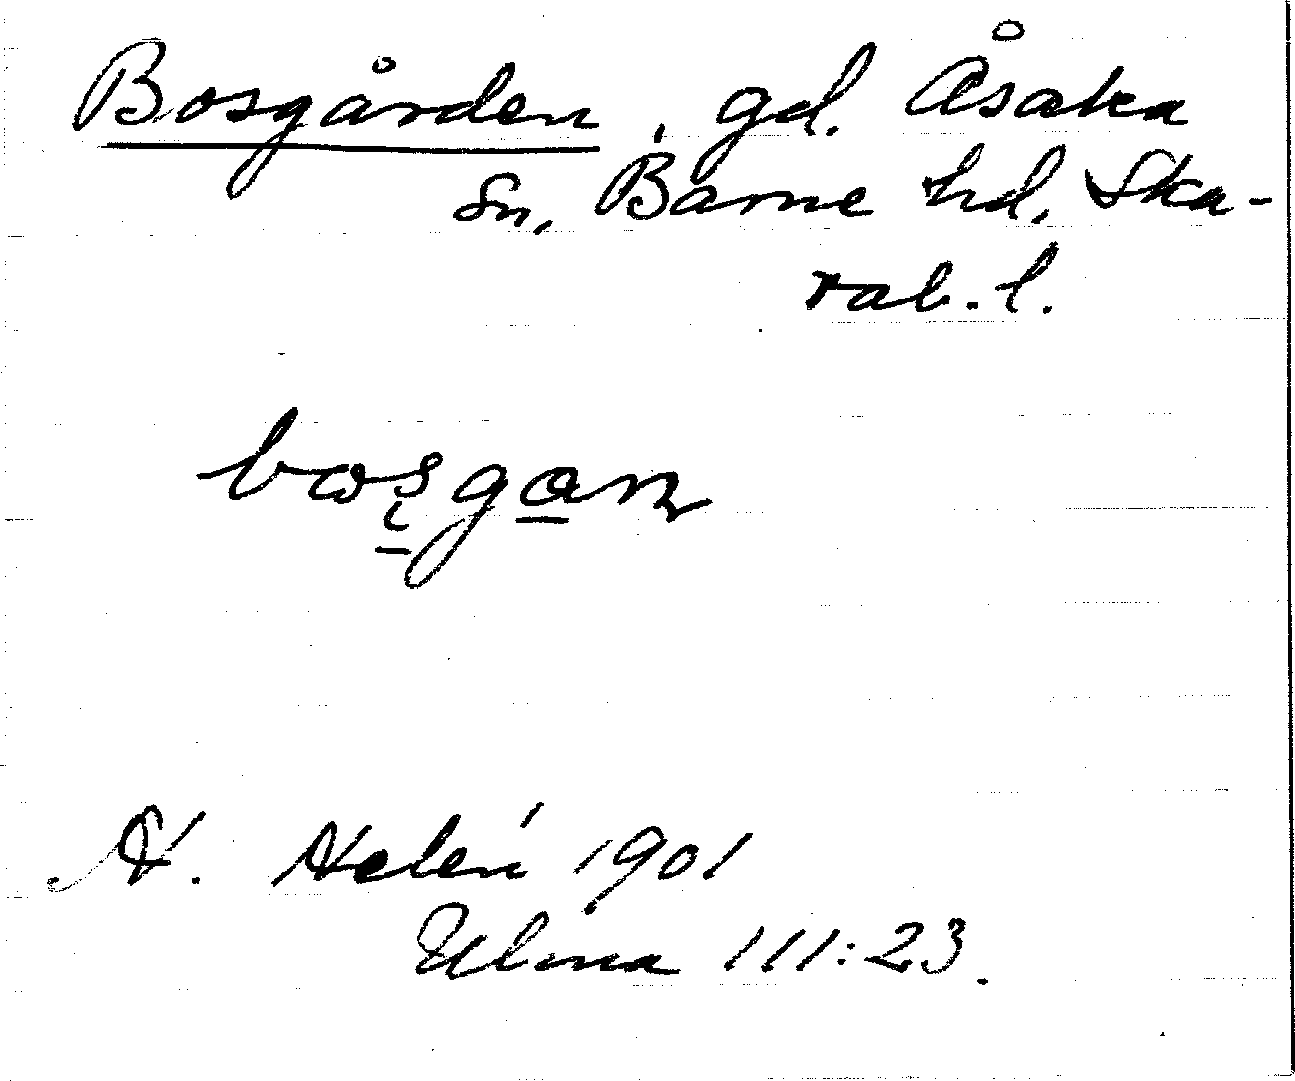 Bosgården, gd. Åsaka
sn, Barne hd. Ska-
rab. l.
N. Helén 1901
Ulma 111:23.